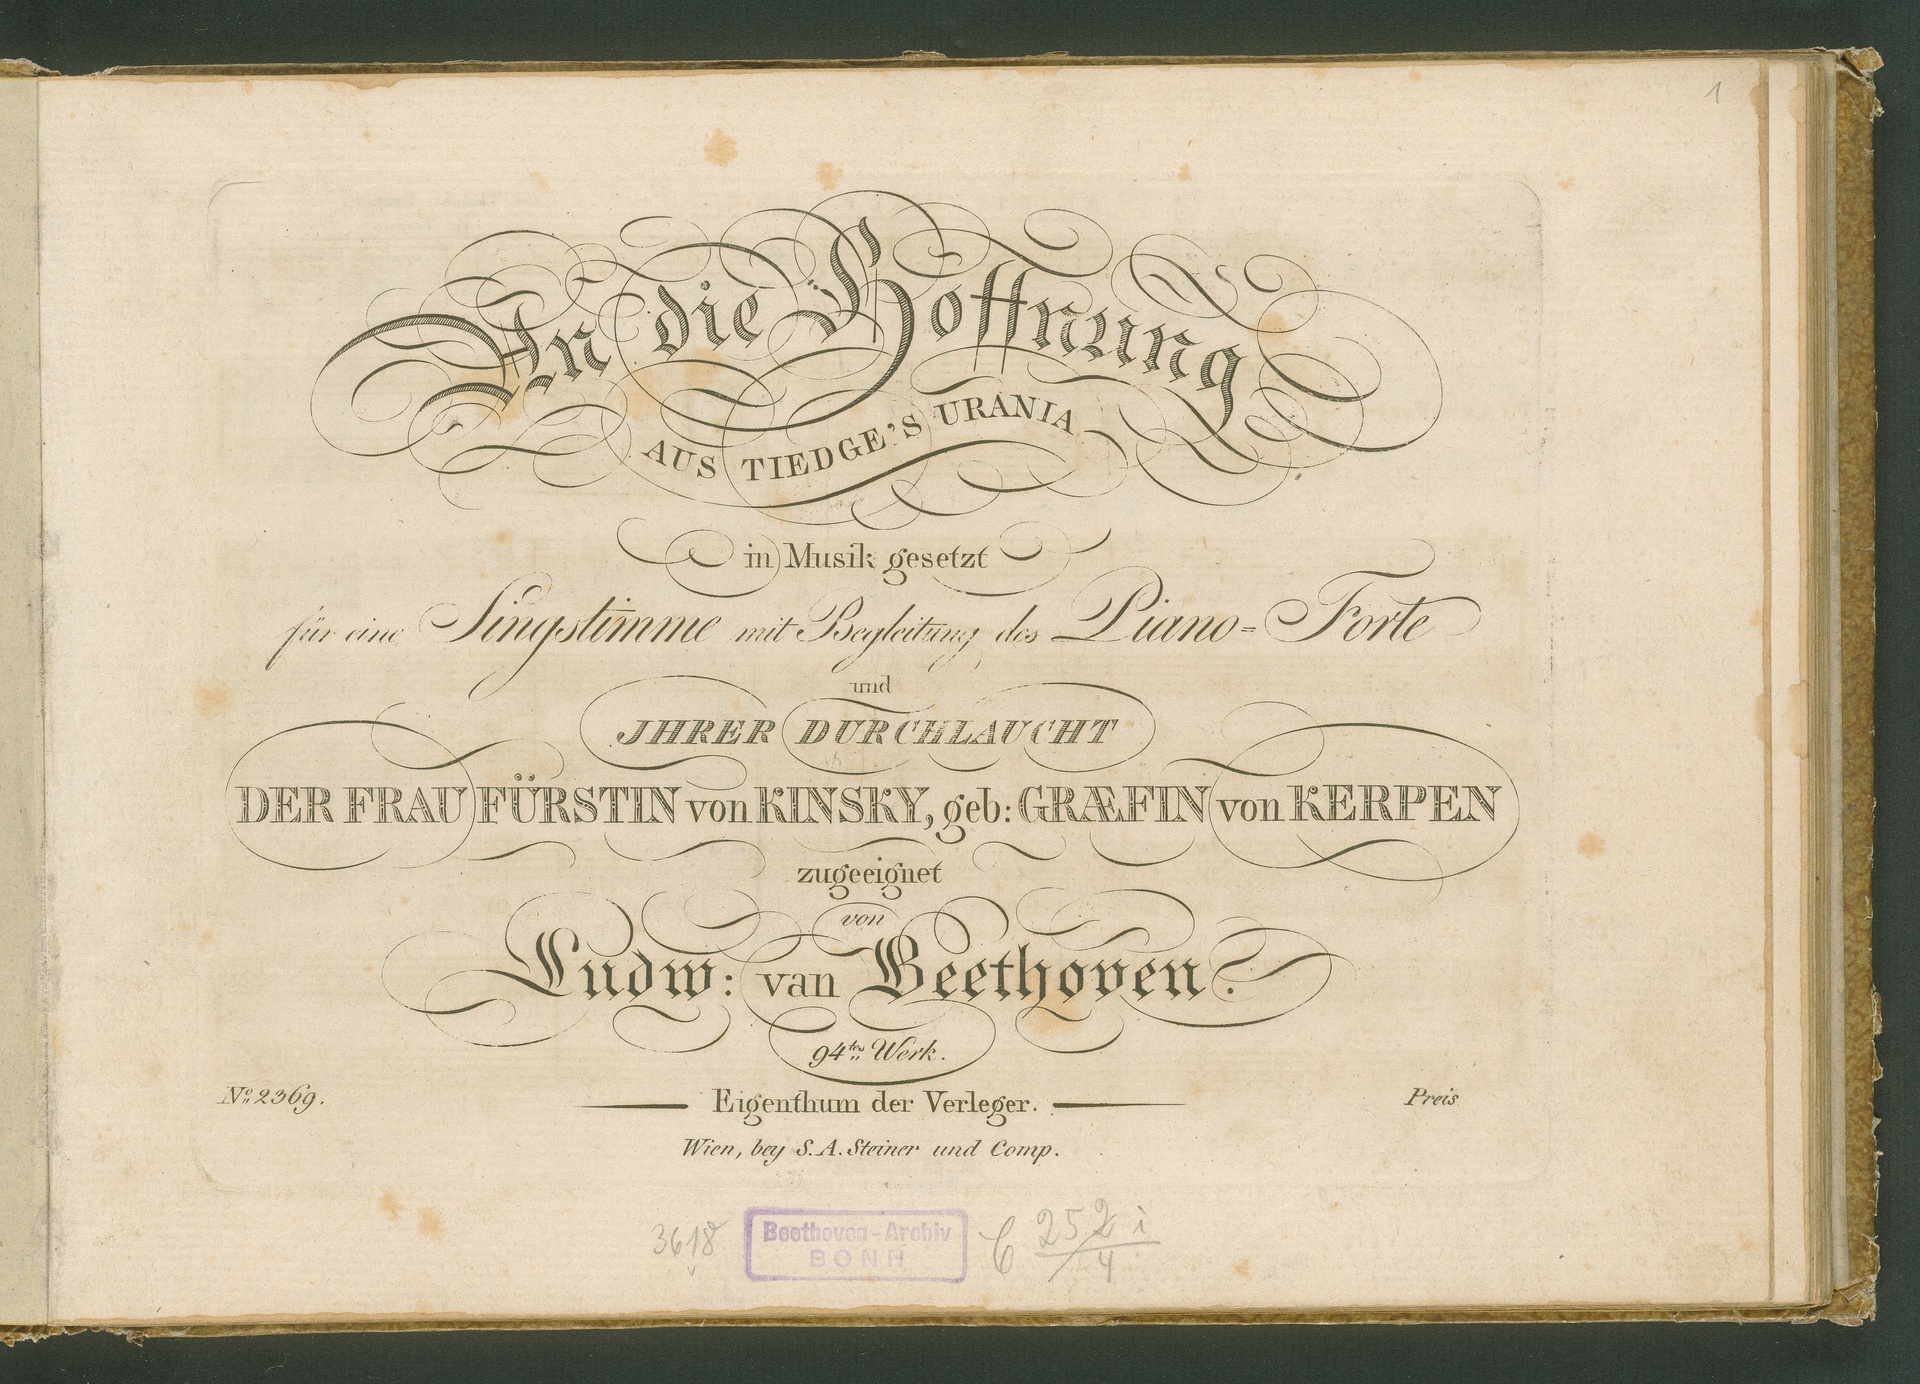 1
An die Hoffnung
AUS TIEDGE'S URANIA
in Musik gesetzt
für eine Singstimme mit Begleitung des Piano=Forte
und
JHRER DURCHLAUCHT
DER FRAU FÜRSTIN von KINSKY, geb: GRÆFIN von KERPEN
zugeeignet
von
Ludw: van Beethoven.
94tes Werk.
No. 2369.
Eigenthum der Verleger.
Preis
Wien, bey S. A. Steiner und Comp.
3618
Beethoven-Archiv
BONN
C 252 i
4